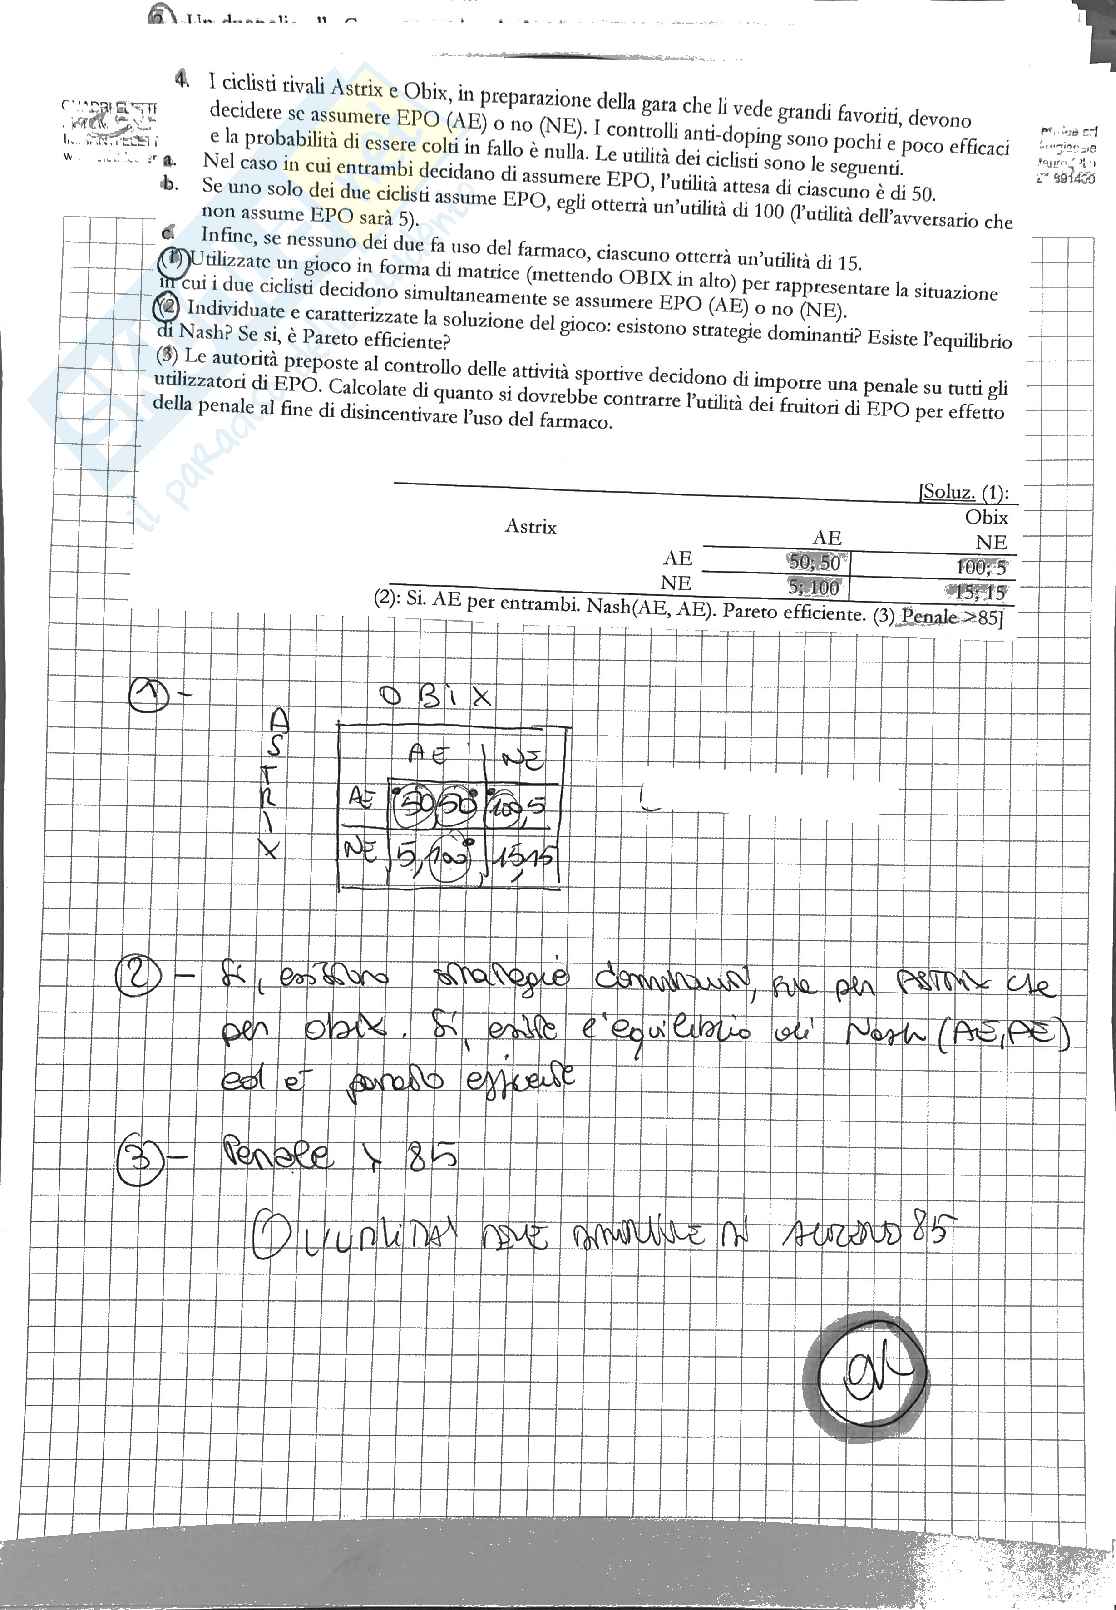 4. I ciclisti rivali Astrix e Obix, in preparazione della gara che li vede grandi favoriti, devono
decidere se assumere EPO (AE) o no (NE). I controlli anti-doping sono pochi e poco efficaci
e la probabilità di essere colti in fallo è nulla. Le utilità dei ciclisti sono le seguenti.
a. Nel caso in cui entrambi decidano di assumere EPO, l'utilità attesa di ciascuno è di 50.
b. Se uno solo dei due ciclisti assume EPO, egli otterrà un'utilità di 100 (l'utilità dell'avversario che
non assume EPO sarà 5).
c. Infine, se nessuno dei due fa uso del farmaco, ciascuno otterrà un'utilità di 15.
(1) Utilizzate un gioco in forma di matrice (mettendo OBIX in alto) per rappresentare la situazione
in cui i due ciclisti decidono simultaneamente se assumere EPO (AE) o no (NE).
(2) Individuate e caratterizzate la soluzione del gioco: esistono strategie dominanti? Esiste l'equilibrio
di Nash? Se si, è Pareto efficiente?
(3) Le autorità preposte al controllo delle attività sportive decidono di imporre una penale su tutti gli
utilizzatori di EPO. Calcolate di quanto si dovrebbe contrarre l'utilità dei fruitori di EPO per effetto
della penale al fine di disincentivare l'uso del farmaco.
[Soluz. (1):
Obix
Astrix AE NE
AE 50; 50 100; 5
NE 5; 100 15; 15
(2): Si. AE per entrambi. Nash(AE, AE). Pareto efficiente. (3) Penale >85]
1 - OBIX
ASTRIX
AE NE
AE 50,50 100,5
NE 5,100 15,15
2 - Si, esistono strategie dominanti, sia per ASTRIX che
per obix. Si, esiste l'equilibrio di Nash (AE,AE)
ed è pareto efficiente
3 - Penale > 85
L'UTILITA' DEVE DIMINUIRE DI ALMENO 85
ok